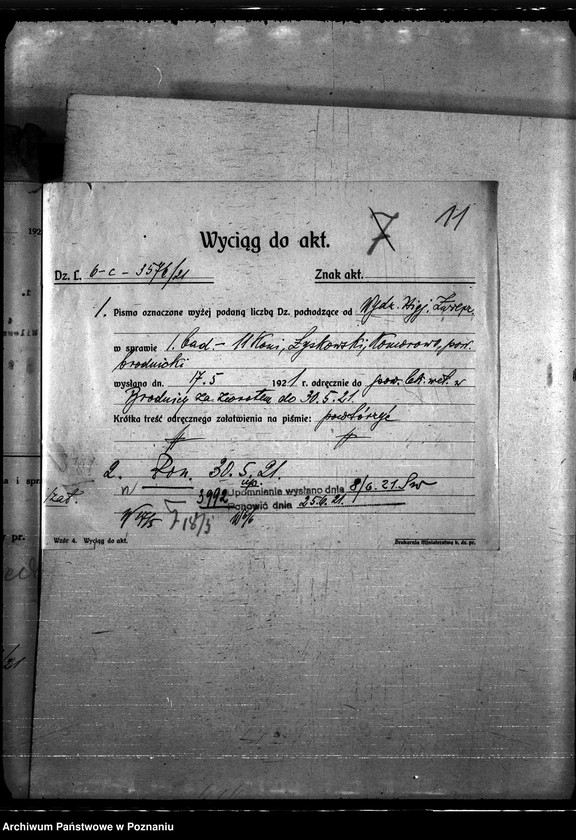 11
7
Wyciąg do akt.
Dz. L. 6-c-3576/21
Znak akt.
1. Pismo oznaczone wyżej podaną liczbą Dz. pochodzące od
w sprawie 1. bad. - 11 koni, Łyskowski, Komorowo, pow.
brodnicki
wysłano dn. 17.5 1921 r. odręcznie do pow. lek. wet. w
Brodnicy za zwrotem do 30.5.21.
Krótka treść odręcznego załatwienia na piśmie: powtórzyć
2. Pon. 30.5.21.
3992 Upomnienia wysłano dnia 8/6.21.
Ponowić dnia 25.6.21.
18/5
Wzór 4. Wyciąg do akt.
Drukarnia Ministerstwa b. dz. pr.
Archiwum Państwowe w Poznaniu